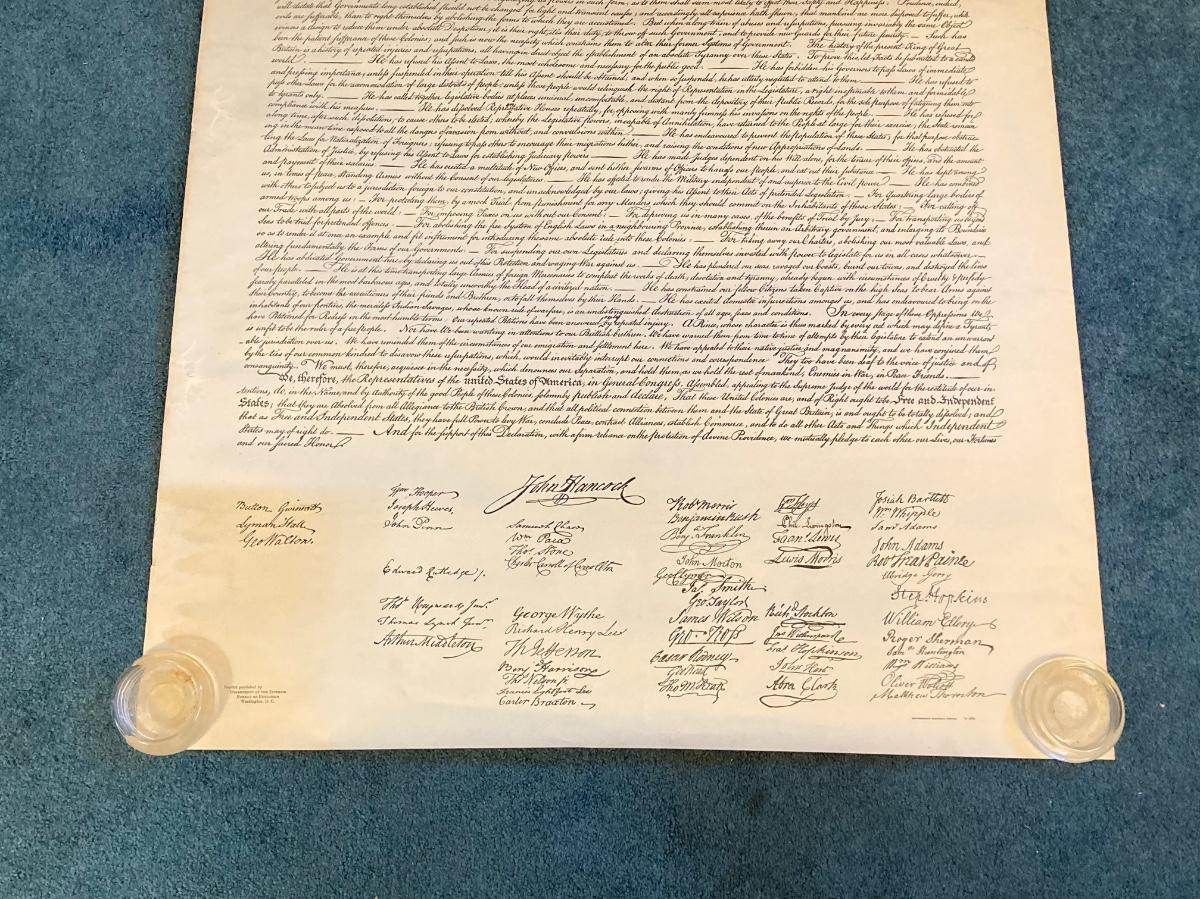 will dictate that Governments long established should not be changed for light and transient causes; and accordingly all experience hath shewn, that mankind are more disposed to suffer, while
evils are sufferable, than to right themselves by abolishing the forms to which they are accustomed. But when a long train of abuses and usurpations, pursuing invariably the same Object
evinces a design to reduce them under absolute Despotism, it is their right, it is their duty, to throw off such Government, and to provide new Guards for their future security. — Such has
been the patient sufferance of these Colonies; and such is now the necessity which constrains them to alter their former Systems of Government. The history of the present King of Great
Britain is a history of repeated injuries and usurpations, all having in direct object the establishment of an absolute Tyranny over these States. To prove this, let Facts be submitted to a candid
world. — He has refused his Assent to Laws, the most wholesome and necessary for the public good. — He has forbidden his Governors to pass Laws of immediate
and pressing importance, unless suspended in their operation till his Assent should be obtained; and when so suspended, he has utterly neglected to attend to them. — He has refused to
pass other Laws for the accommodation of large districts of people, unless those people would relinquish the right of Representation in the Legislature, a right inestimable to them and formidable
to tyrants only. — He has called together legislative bodies at places unusual, uncomfortable, and distant from the depository of their Public Records, for the sole purpose of fatiguing them into
compliance with his measures. — He has dissolved Representative Houses repeatedly, for opposing with manly firmness his invasions on the rights of the people. — He has refused for
a long time, after such dissolutions, to cause others to be elected; whereby the Legislative powers, incapable of Annihilation, have returned to the People at large for their exercise; the State remain
ing in the mean time exposed to all the dangers of invasion from without, and convulsions within. — He has endeavoured to prevent the population of these States; for that purpose obstruc
ting the Laws for Naturalization of Foreigners; refusing to pass others to encourage their migrations hither, and raising the conditions of new Appropriations of Lands. — He has obstructed the
Administration of Justice, by refusing his Assent to Laws for establishing Judiciary powers. — He has made Judges dependent on his Will alone, for the tenure of their offices, and the amount
and payment of their salaries. — He has erected a multitude of New Offices, and sent hither swarms of Officers to harrass our people, and eat out their substance. — He has kept among
us, in times of peace, Standing Armies without the Consent of our legislatures. — He has affected to render the Military independent of and superior to the Civil power. — He has combined
with others to subject us to a jurisdiction foreign to our constitution, and unacknowledged by our laws; giving his Assent to their Acts of pretended Legislation: — For Quartering large bodies of
armed troops among us: — For protecting them, by a mock Trial, from punishment for any Murders which they should commit on the Inhabitants of these States: — For cutting off
our Trade with all parts of the world: — For imposing Taxes on us without our Consent: — For depriving us in many cases, of the benefits of Trial by Jury: — For transporting us beyond
Seas to be tried for pretended offences — For abolishing the free System of English Laws in a neighbouring Province, establishing therein an Arbitrary government, and enlarging its Boundaries
so as to render it at once an example and fit instrument for introducing the same absolute rule into these Colonies: — For taking away our Charters, abolishing our most valuable Laws, and
altering fundamentally the Forms of our Governments: — For suspending our own Legislatures, and declaring themselves invested with power to legislate for us in all cases whatsoever. —
He has abdicated Government here, by declaring us out of his Protection and waging War against us. — He has plundered our seas, ravaged our Coasts, burnt our towns, and destroyed the lives
of our people. — He is at this time transporting large Armies of foreign Mercenaries to compleat the works of death, desolation and tyranny, already begun with circumstances of Cruelty & perfidy
scarcely paralleled in the most barbarous ages, and totally unworthy the Head of a civilized nation. — He has constrained our fellow Citizens taken Captive on the high Seas to bear Arms against
their Country, to become the executioners of their friends and Brethren, or to fall themselves by their Hands. — He has excited domestic insurrections amongst us, and has endeavoured to bring on the
inhabitants of our frontiers, the merciless Indian Savages, whose known rule of warfare, is an undistinguished destruction of all ages, sexes and conditions. In every stage of these Oppressions We
have Petitioned for Redress in the most humble terms: Our repeated Petitions have been answered only by repeated injury. A Prince, whose character is thus marked by every act which may define a Tyrant,
is unfit to be the ruler of a free people. Nor have We been wanting in attentions to our Brittish brethren. We have warned them from time to time of attempts by their legislature to extend an unwarrant
able jurisdiction over us. We have reminded them of the circumstances of our emigration and settlement here. We have appealed to their native justice and magnanimity, and we have conjured them
by the ties of our common kindred to disavow these usurpations, which, would inevitably interrupt our connections and correspondence They too have been deaf to the voice of justice and of
consanguinity. We must, therefore, acquiesce in the necessity, which denounces our Separation, and hold them, as we hold the rest of mankind, Enemies in War, in Peace Friends. —
We, therefore, the Representatives of the united States of America, in General Congress, Assembled, appealing to the Supreme Judge of the world for the rectitude of our in
tentions, do, in the Name, and by Authority of the good People of these Colonies, solemnly publish and declare, That these United Colonies are, and of Right ought to be Free and Independent
States; that they are Absolved from all Allegiance to the British Crown, and that all political connection between them and the State of Great Britain, is and ought to be totally dissolved; and
that as Free and Independent States, they have full Power to levy War, conclude Peace, contract Alliances, establish Commerce, and to do all other Acts and Things which Independent
States may of right do. — And for the support of this Declaration, with a firm reliance on the protection of divine Providence, we mutually pledge to each other our Lives, our Fortunes
and our sacred Honor.
John Hancock
Button Gwinnett
Lyman Hall
Geo Walton.
Wm Hooper
Joseph Hewes,
John Penn
Edward Rutledge /.
Thos Heyward Junr.
Thomas Lynch Junr.
Arthur Middleton
Samuel Chase
Wm Paca
Thos Stone
Charles Carroll of Carrollton
George Wythe
Richard Henry Lee
Th Jefferson
Benj Harrison
Thos Nelson jr.
Francis Lightfoot Lee
Carter Braxton
Robt Morris
Benjamin Rush
Benj Franklin
John Morton
Geo Clymer
Jas Smith
Geo. Taylor
James Wilson
Geo. Ross
Caesar Rodney
Geo Read
Tho M:Kean
Wm Floyd
Phil. Livingston
Frans Lewis
Lewis Morris
Richd Stockton
Jno Witherspoon
Fras Hopkinson
John Hart
Abra Clark
Josiah Bartlett
Wm Whipple
Saml Adams
John Adams
Robt Treat Paine
Elbridge Gerry
Step Hopkins
William Ellery
Roger Sherman
Saml Huntington
Wm Williams
Oliver Wolcott
Matthew Thornton
Reprint published by
Department of the Interior
Bureau of Education
Washington, D. C.